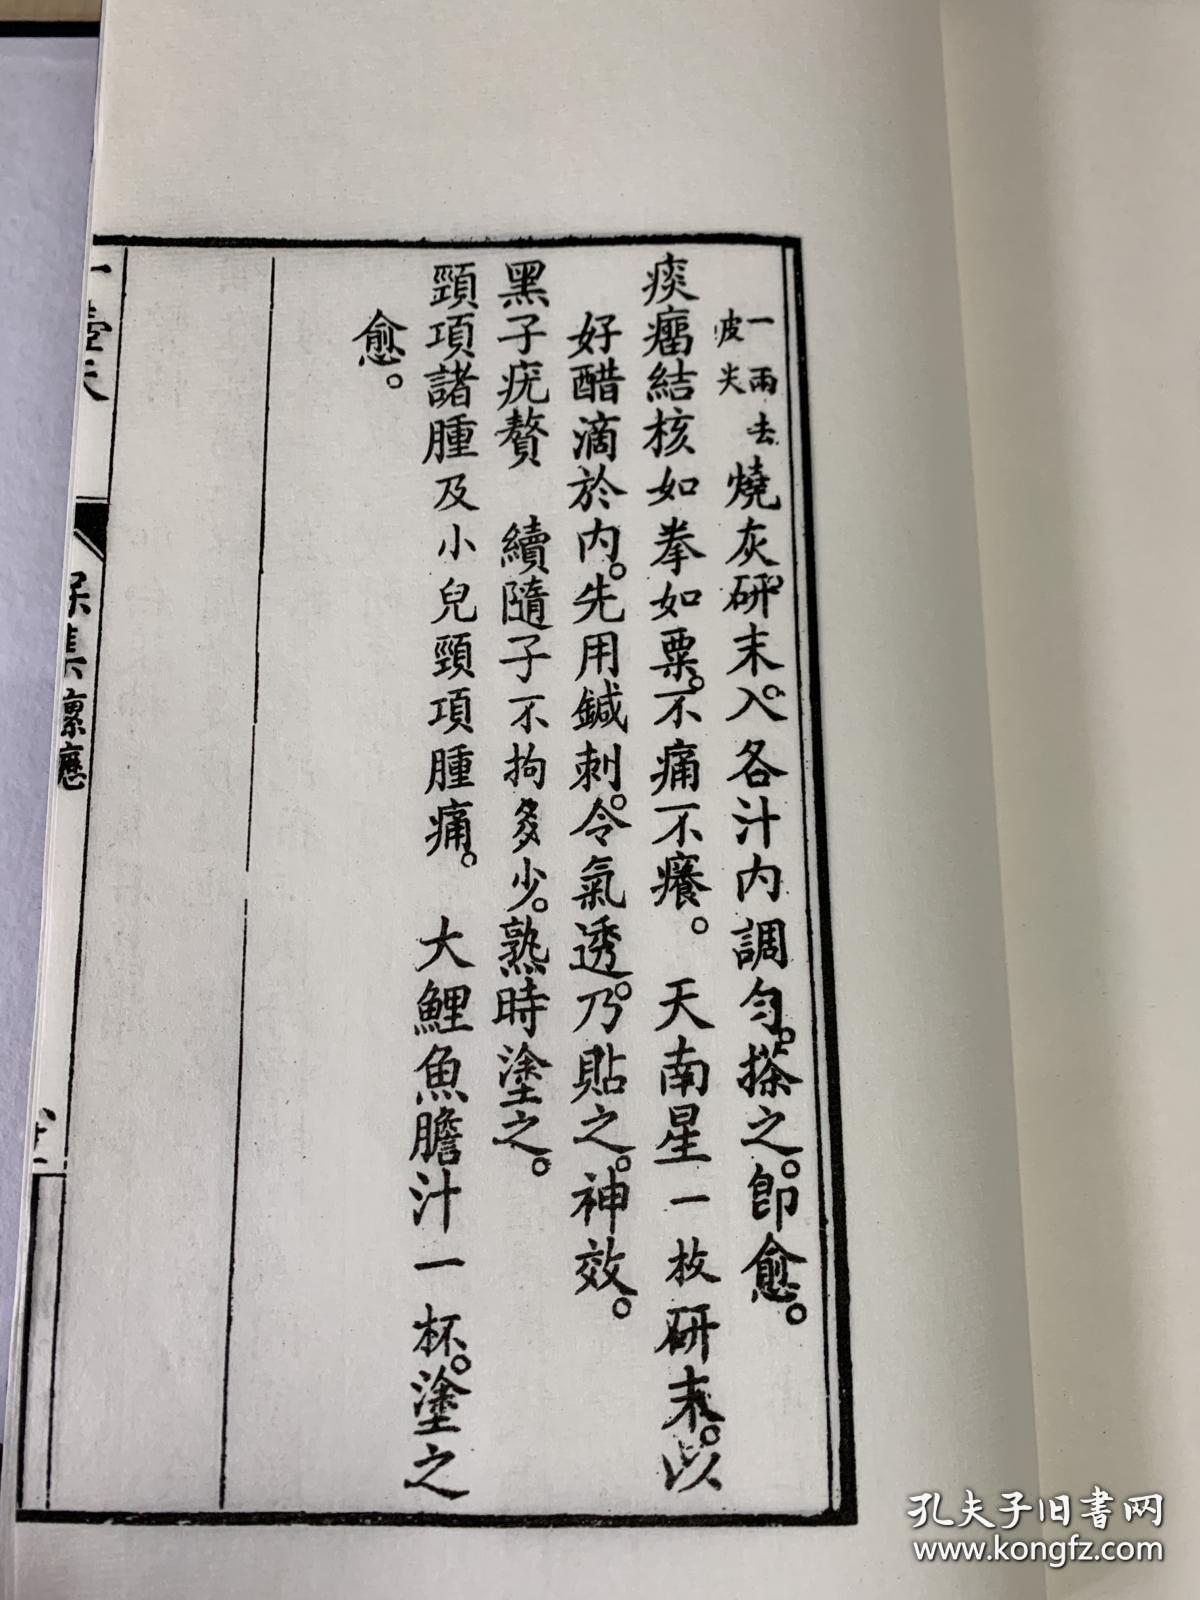 一兩去
皮尖
燒灰研末。入各汁內調勻。搽之。即愈。
痰瘤結核如拳如粟。不痛不癢。　天南星一枚研末。以
好醋滴於內。先用鍼刺。令氣透。乃貼之。神效。
黑子疣贅　續隨子不拘多少。熟時塗之。
頸項諸腫及小兒頸項腫痛。　大鯉魚膽汁一杯。塗之
愈。
壺天
集瘰癧
孔夫子旧書网
www.kongfz.com